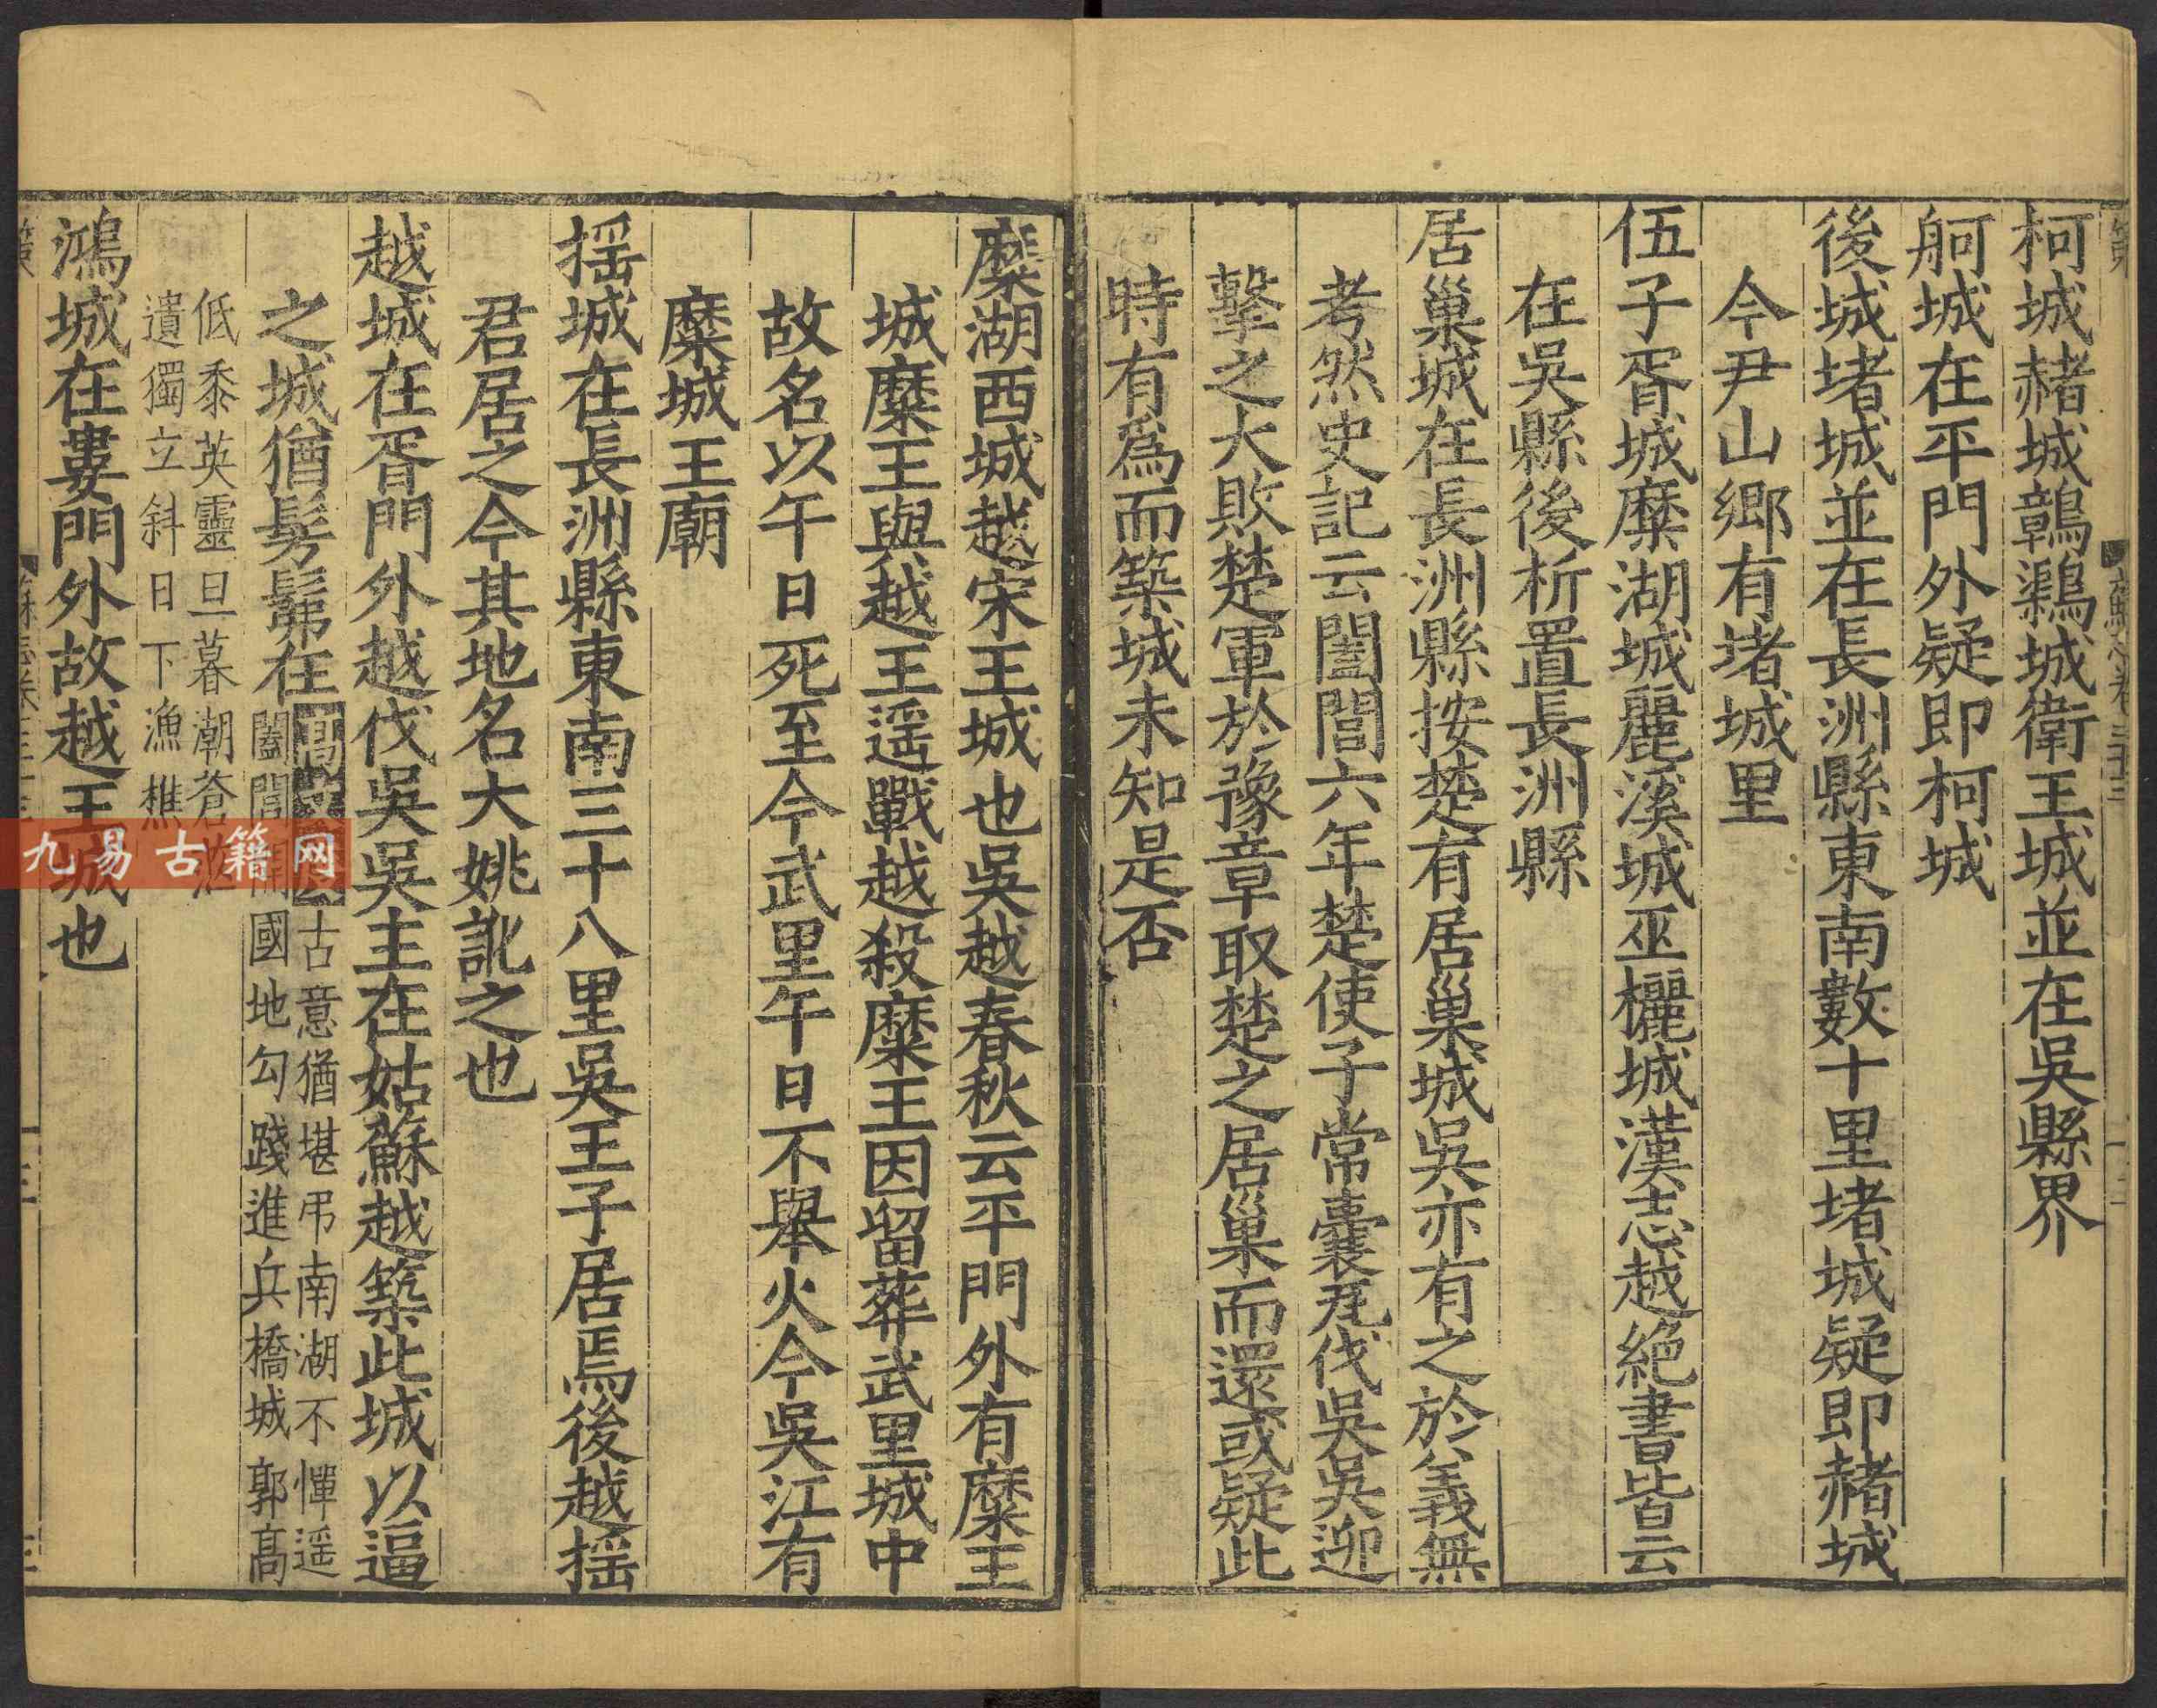 柯城赭城鶄鸂城衛王城並在吳縣界
舸城在平門外疑即柯城
後城堵城並在長洲縣東南數十里堵城疑即赭城
今尹山鄉有堵城里
伍子胥城糜湖城麗溪城巫欐城漢志越絕書皆云
在吳縣後析置長洲縣
居巢城在長洲縣按楚有居巢城吳亦有之於義無
考然史記云闔閭六年楚使子常囊瓦伐吳吳迎
擊之大敗楚軍於豫章取楚之居巢而還或疑此
時有爲而築城未知是否
糜湖西城越宋王城也吳越春秋云平門外有糜王
城糜王與越王遥戰越殺糜王因留葬武里城中
故名以午日死至今武里午日不舉火今吳江有
糜城王廟
揺城在長洲縣東南三十八里吳王子居焉後越揺
君居之今其地名大姚訛之也
越城在胥門外越伐吳吳主在姑蘇越築此城以逼
之城猶髣髴在
古意猶堪弔南湖不憚遥
闔閭開國地勾踐進兵橋城郭高
低黍英靈旦暮潮蒼
遺獨立斜日下漁樵
鴻城在婁門外故越王城也
九易古籍网